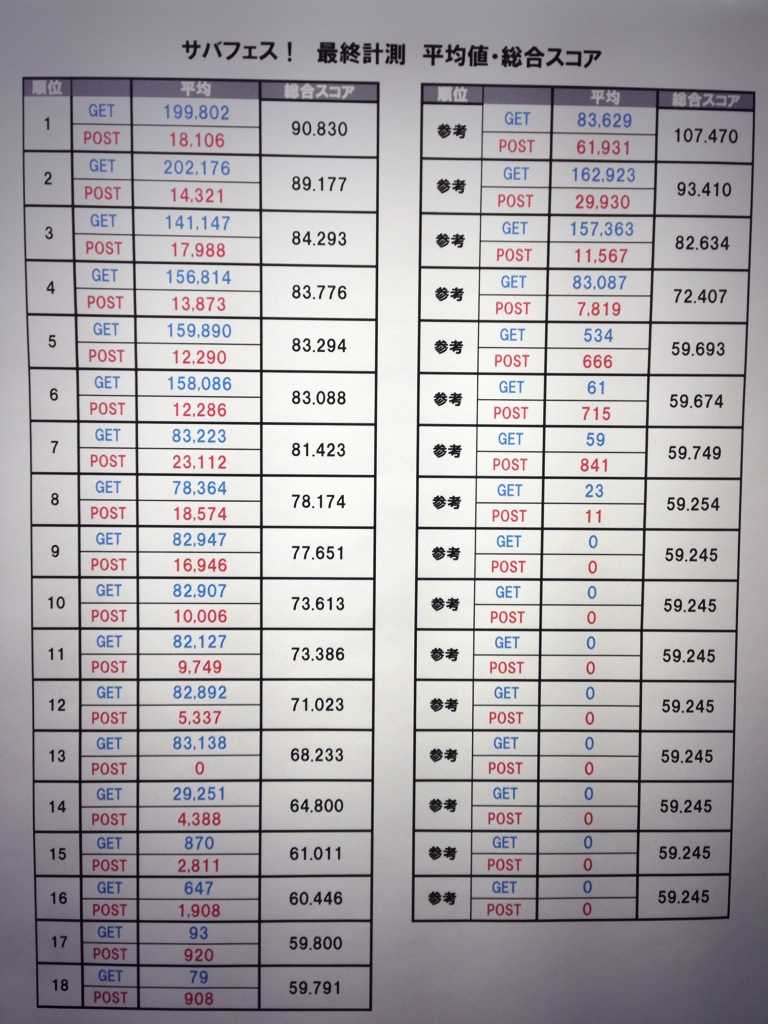 サバフェス！ 最終計測 平均値・総合スコア
順位 平均 総合スコア
1 GET 199,802 90.830
POST 18,106
2 GET 202,176 89.177
POST 14,321
3 GET 141,147 84.293
POST 17,988
4 GET 156,814 83.776
POST 13,873
5 GET 159,890 83.294
POST 12,290
6 GET 158,086 83.088
POST 12,286
7 GET 83,223 81.423
POST 23,112
8 GET 78,364 78.174
POST 18,574
9 GET 82,947 77.651
POST 16,946
10 GET 82,907 73.613
POST 10,006
11 GET 82,127 73.386
POST 9,749
12 GET 82,892 71.023
POST 5,337
13 GET 83,138 68.233
POST 0
14 GET 29,251 64.800
POST 4,388
15 GET 870 61.011
POST 2,811
16 GET 647 60.446
POST 1,908
17 GET 93 59.800
POST 920
18 GET 79 59.791
POST 908
順位 平均 総合スコア
参考 GET 83,629 107.470
POST 61,931
参考 GET 162,923 93.410
POST 29,930
参考 GET 157,363 82.634
POST 11,567
参考 GET 83,087 72.407
POST 7,819
参考 GET 534 59.693
POST 666
参考 GET 61 59.674
POST 715
参考 GET 59 59.749
POST 841
参考 GET 23 59.254
POST 11
参考 GET 0 59.245
POST 0
参考 GET 0 59.245
POST 0
参考 GET 0 59.245
POST 0
参考 GET 0 59.245
POST 0
参考 GET 0 59.245
POST 0
参考 GET 0 59.245
POST 0
参考 GET 0 59.245
POST 0
参考 GET 0 59.245
POST 0